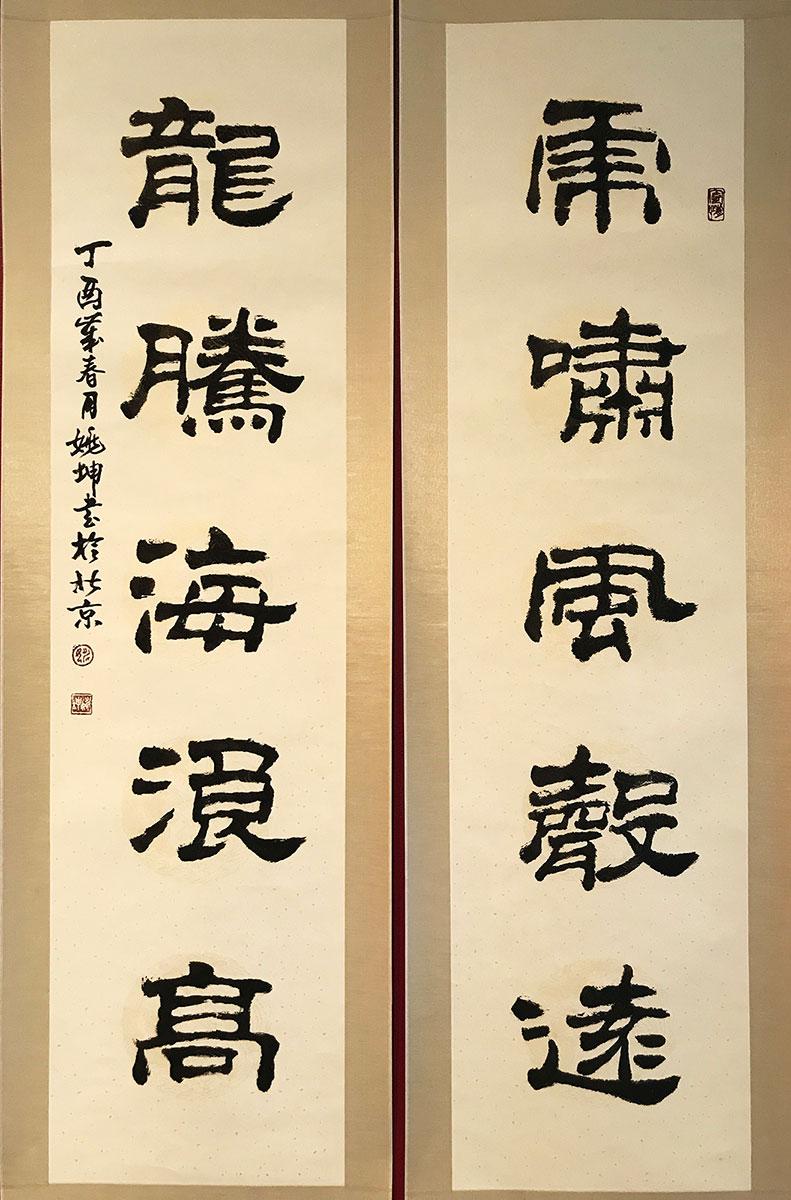 虎嘯風聲遠
龍騰海浪高
丁酉歲春月姚坤書於北京